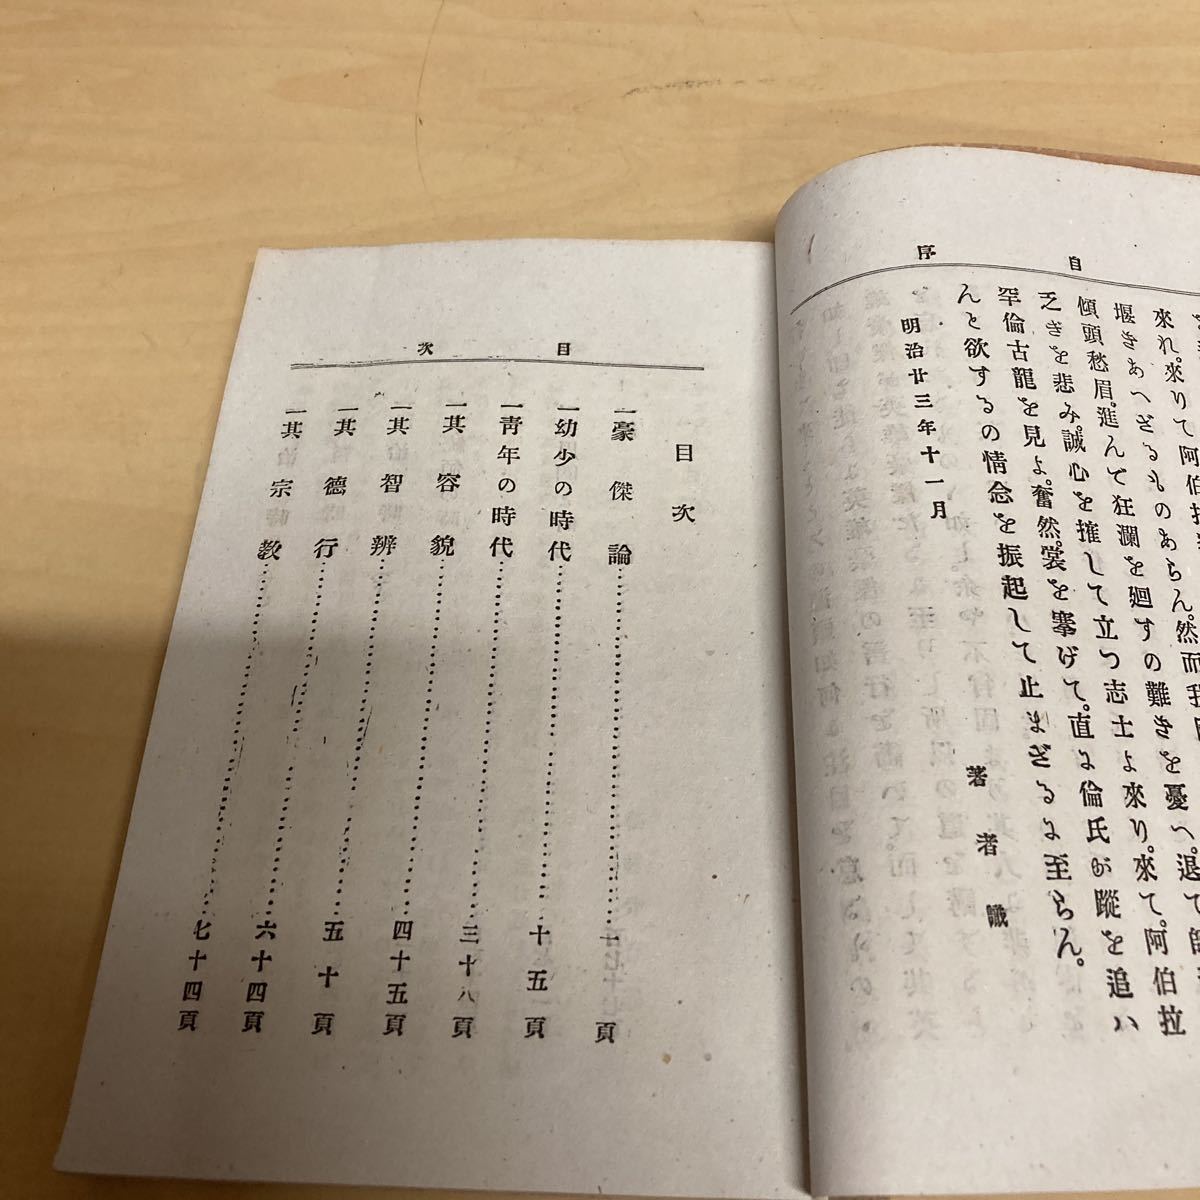 自序
來れ。來りて阿伯拉
堰きあへざるものあらん。然而我國
傾頭愁眉。進んで狂瀾を廻すの難きを憂へ。退て師
乏きを悲み。誠心を摧して立つ志士よ來り。來て。阿伯拉
罕倫古龍を見よ。奮然。裳を搴げて。直に倫氏が蹤を追ハ
んと欲するの情念を振起して止まざるに至らん。
明治廿三年十一月
著者識
目次
目次
一豪傑論……一頁
一幼少の時代……十五頁
一青年の時代……三十八頁
一其容貌……四十五頁
一其智辨……五十頁
一其德行……六十四頁
一其宗教……七十四頁